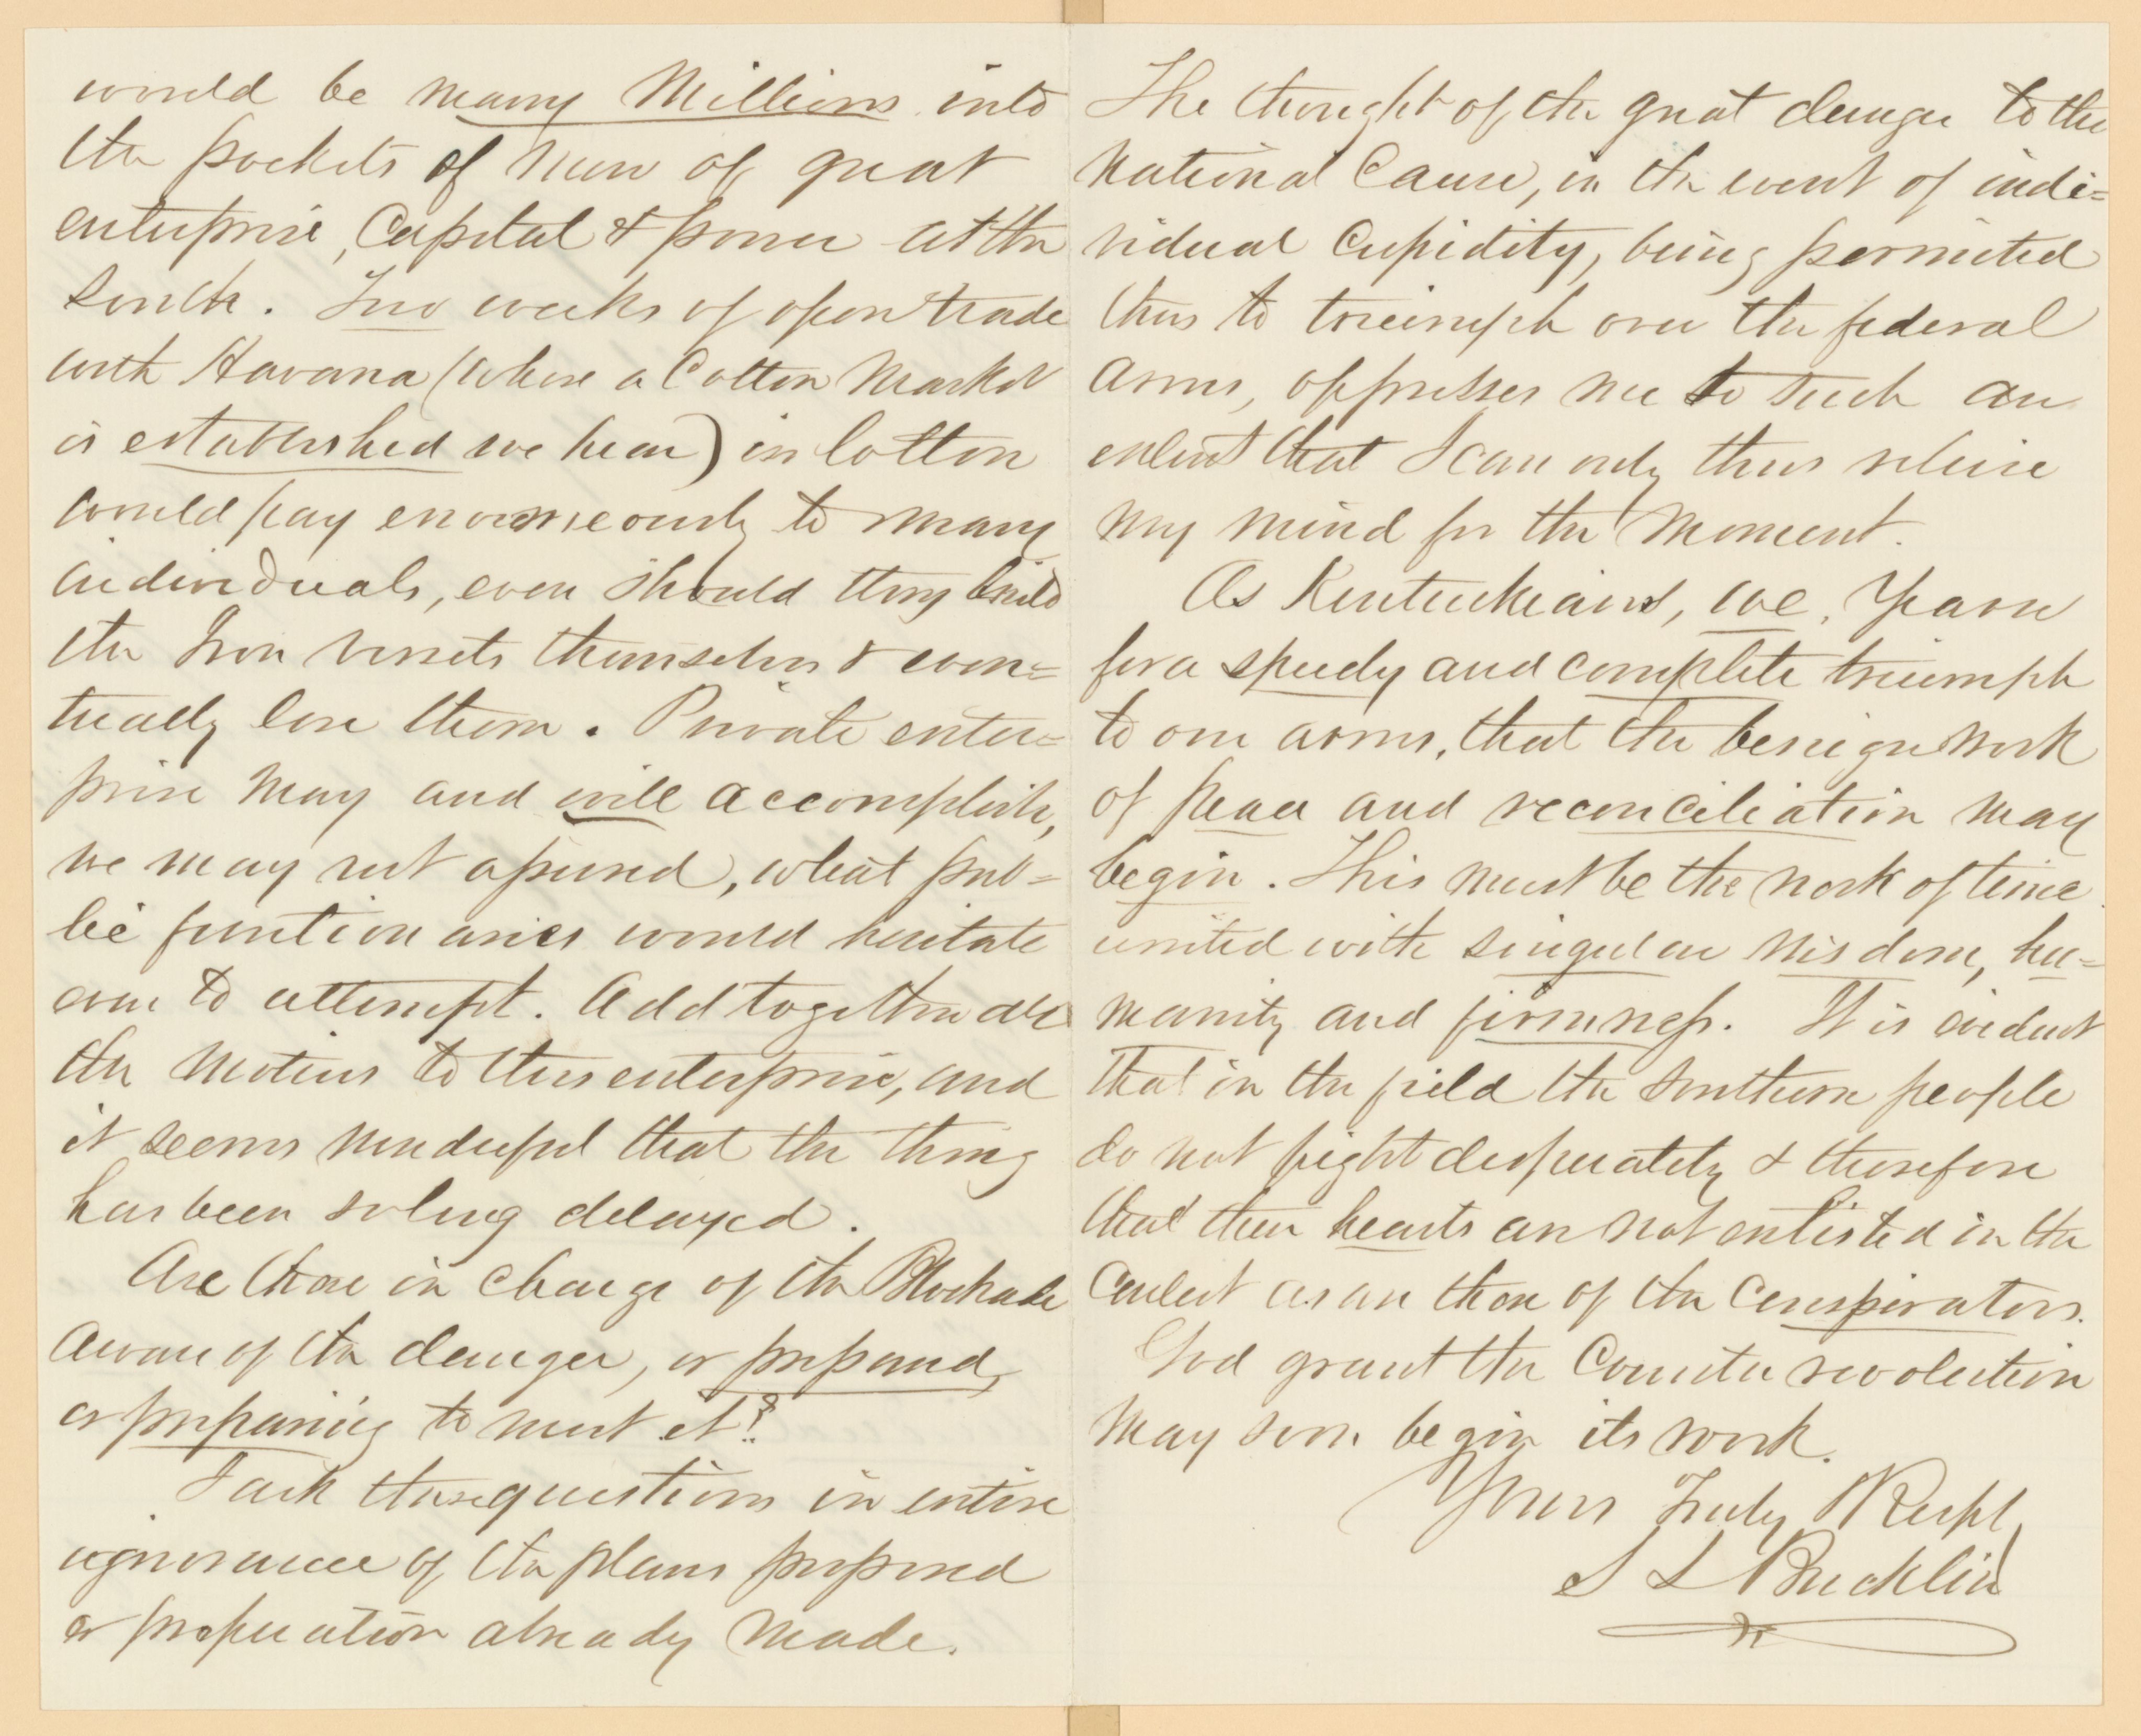 would be many Millions into
the pockets of men of great
enterprise, Capital & power at the
South. Two weeks of open trade
with Havana (where a Cotton Market
is established we hear) in Cotton
would pay enormeously to many
individuals, even should they build
the Iron vessels themselves & even=
tually lose them. Private enter=
prise may and will accomplish,
we may rest assured, what pub=
lic functionaries would hesitate
even to attempt. Add together all
the Motives to this enterprise, and
it seems wonderful that the thing
has been so long delayed.
Are those in charge of the Blockade
aware of the danger, or prepared,
or preparing to meet it?
I ask these questions in entire
ignorance of the plans proposed
or preparation already made.
The thought of the great danger to the
National Cause, in the event of indi=
vidual Cupidity, being permitted
thus to triumph over the federal
arms, oppresses me to such an
extent that I can only thus relieve
my mind for the moment.
As Kentuckians, we, Yearn
for a speedy and complete triumph
to our arms, that the benign work
of peace and reconciliation may
begin. This must be the work of time
united with singular wisdom, hu=
manity and firmness. It is evident
that in the field the Southern people
do not fight desperately & therefore
that their hearts are not enlisted in the
Contest as are those of the Conspirators.
God grant the Counter revolution
may soon begin its work.
Yours Truly & Respt,
S L Bucklin